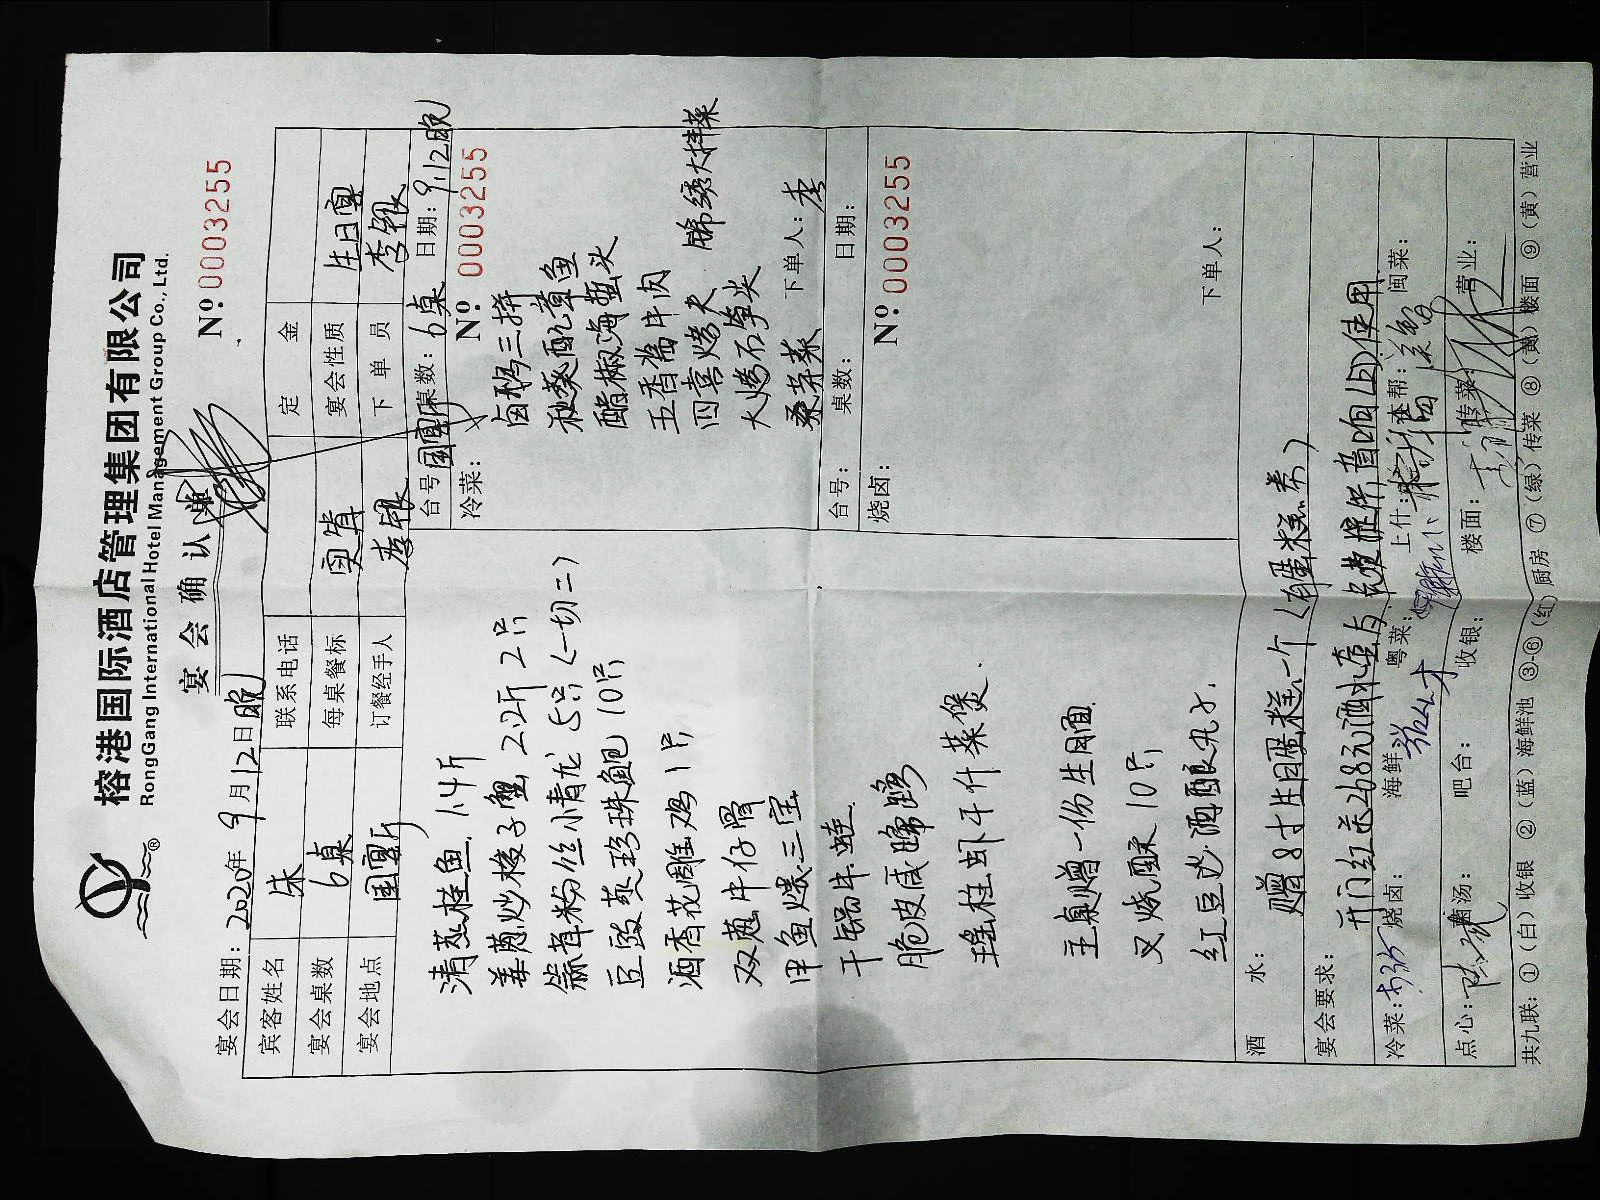 榕港国际酒店管理集团有限公司
RongGang International Hotel Management Group Co., Ltd.
®
宴会确认单
Nº 0003255
宴会日期：2020年9月12日晚
宾客姓名 朱 联系电话 定金
宴会桌数 6桌 每桌餐标 宴会性质 生日宴
宴会地点 国宴厅 订餐经手人 李银 下单员 李银
台号 国宴厅 桌数：6桌 日期：9.12晚
冷菜： Nº 0003255
清蒸桂鱼 1.4斤
姜葱炒梭子蟹 2.2斤 2只
蒜茸粉丝小青龙 5只（一切二）
豆豉蒸珍珠鲍 10只
酒香花雕鸡 1只
双葱牛仔骨
甲鱼煲三宝
干锅牛蛙
脆皮咸蹄髈
瑶柱虾干什菜煲
主桌赠一份生日面
叉烧酥 10只
红豆沙酒酿丸子
卤鸭三拼
章鱼
醋椒海蜇头
五香酱牛肉
四喜烤夫
石笋尖
锦绣大拌菜
下单人：李
台号： 桌数： 日期：
烧卤： Nº 0003255
下单人：
酒水：
赠8寸生日蛋糕一个（有蛋糕券）
宴会要求：
开门红杀268元酒水 音响LED使用
冷菜： 烧卤： 海鲜 粤菜： 上什： 本帮： 闽菜：
点心： 炖汤： 吧台： 收银： 楼面： 传菜 营业：
共九联：①（白）收银 ②（蓝）海鲜池 ③-⑥（红）厨房 ⑦（绿）传菜 ⑧（黄）楼面 ⑨（黄）营业